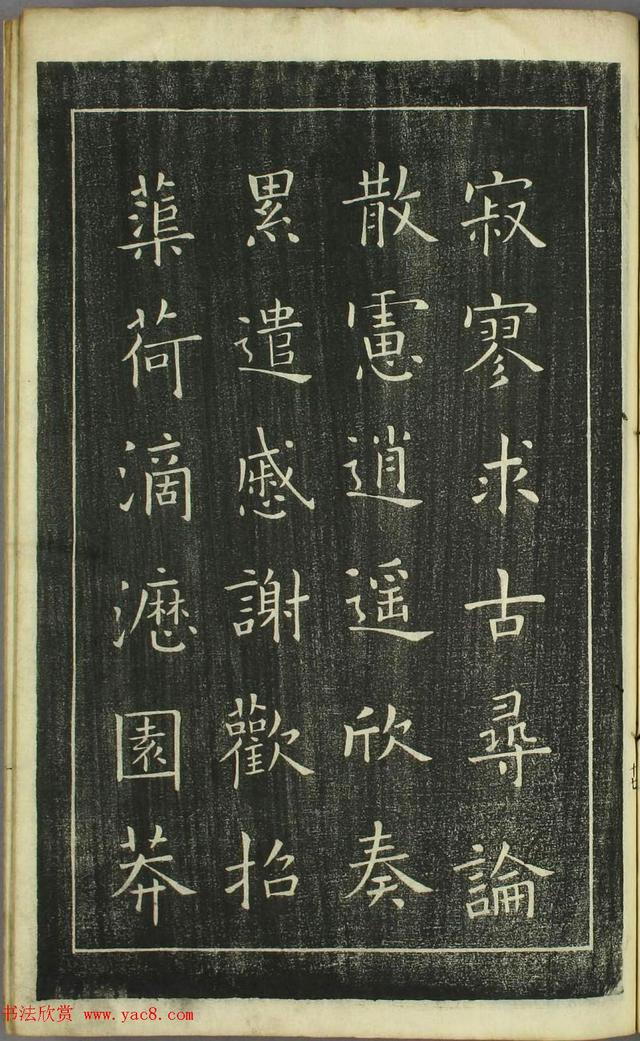 寂寥求古尋論
散慮逍遥欣奏
累遣慼謝歡招
蕖荷滴瀝園莽
十七
书法欣赏 www.yac8.com